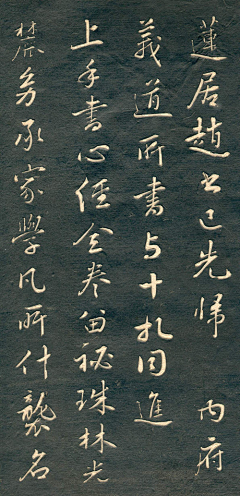 蓮居趙書已先歸　內府
義道所書与十札同進
上手書心經全卷留秘珠林光
禄另承家學凡所什襲名